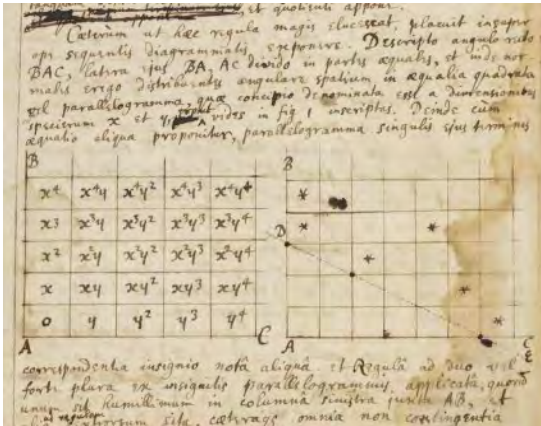 et quotienti appone.
Cæterum ut hæc regula magis elucescat, placuit insuper
ope sequentis diagrammatis, exponere. Descripto angulo recto
BAC, latera ejus BA, AC divido in partes æquales, et inde nor
males erigo distribuentes angulare spatium in æqualia quadrata
vel parallelogramma, quæ concipio denominata esse a dimensionibus
specierum x et y, vides in fig 1 inscriptas. Deinde cum
æquatio aliqua proponitur, parallelogramma singulis ejus terminis
B
x4 x4y x4y2 x4y3 x4y4
x3 x3y x3y2 x3y3 x3y4
x2 x2y x2y2 x2y3 x2y4
x xy xy2 xy3 xy4
0 y y2 y3 y4
A C
B
* 
* *
D
*
*
*
A C
E
correspondentia insignio notâ aliquâ et Regulâ ad duo vel
forte plura ex insignitis parallelogrammis, applicatâ, quorum
unum sit humillimum in columna sinistra juxta AB, et
ad regulam
sita, cæteraque omnia non contingentia